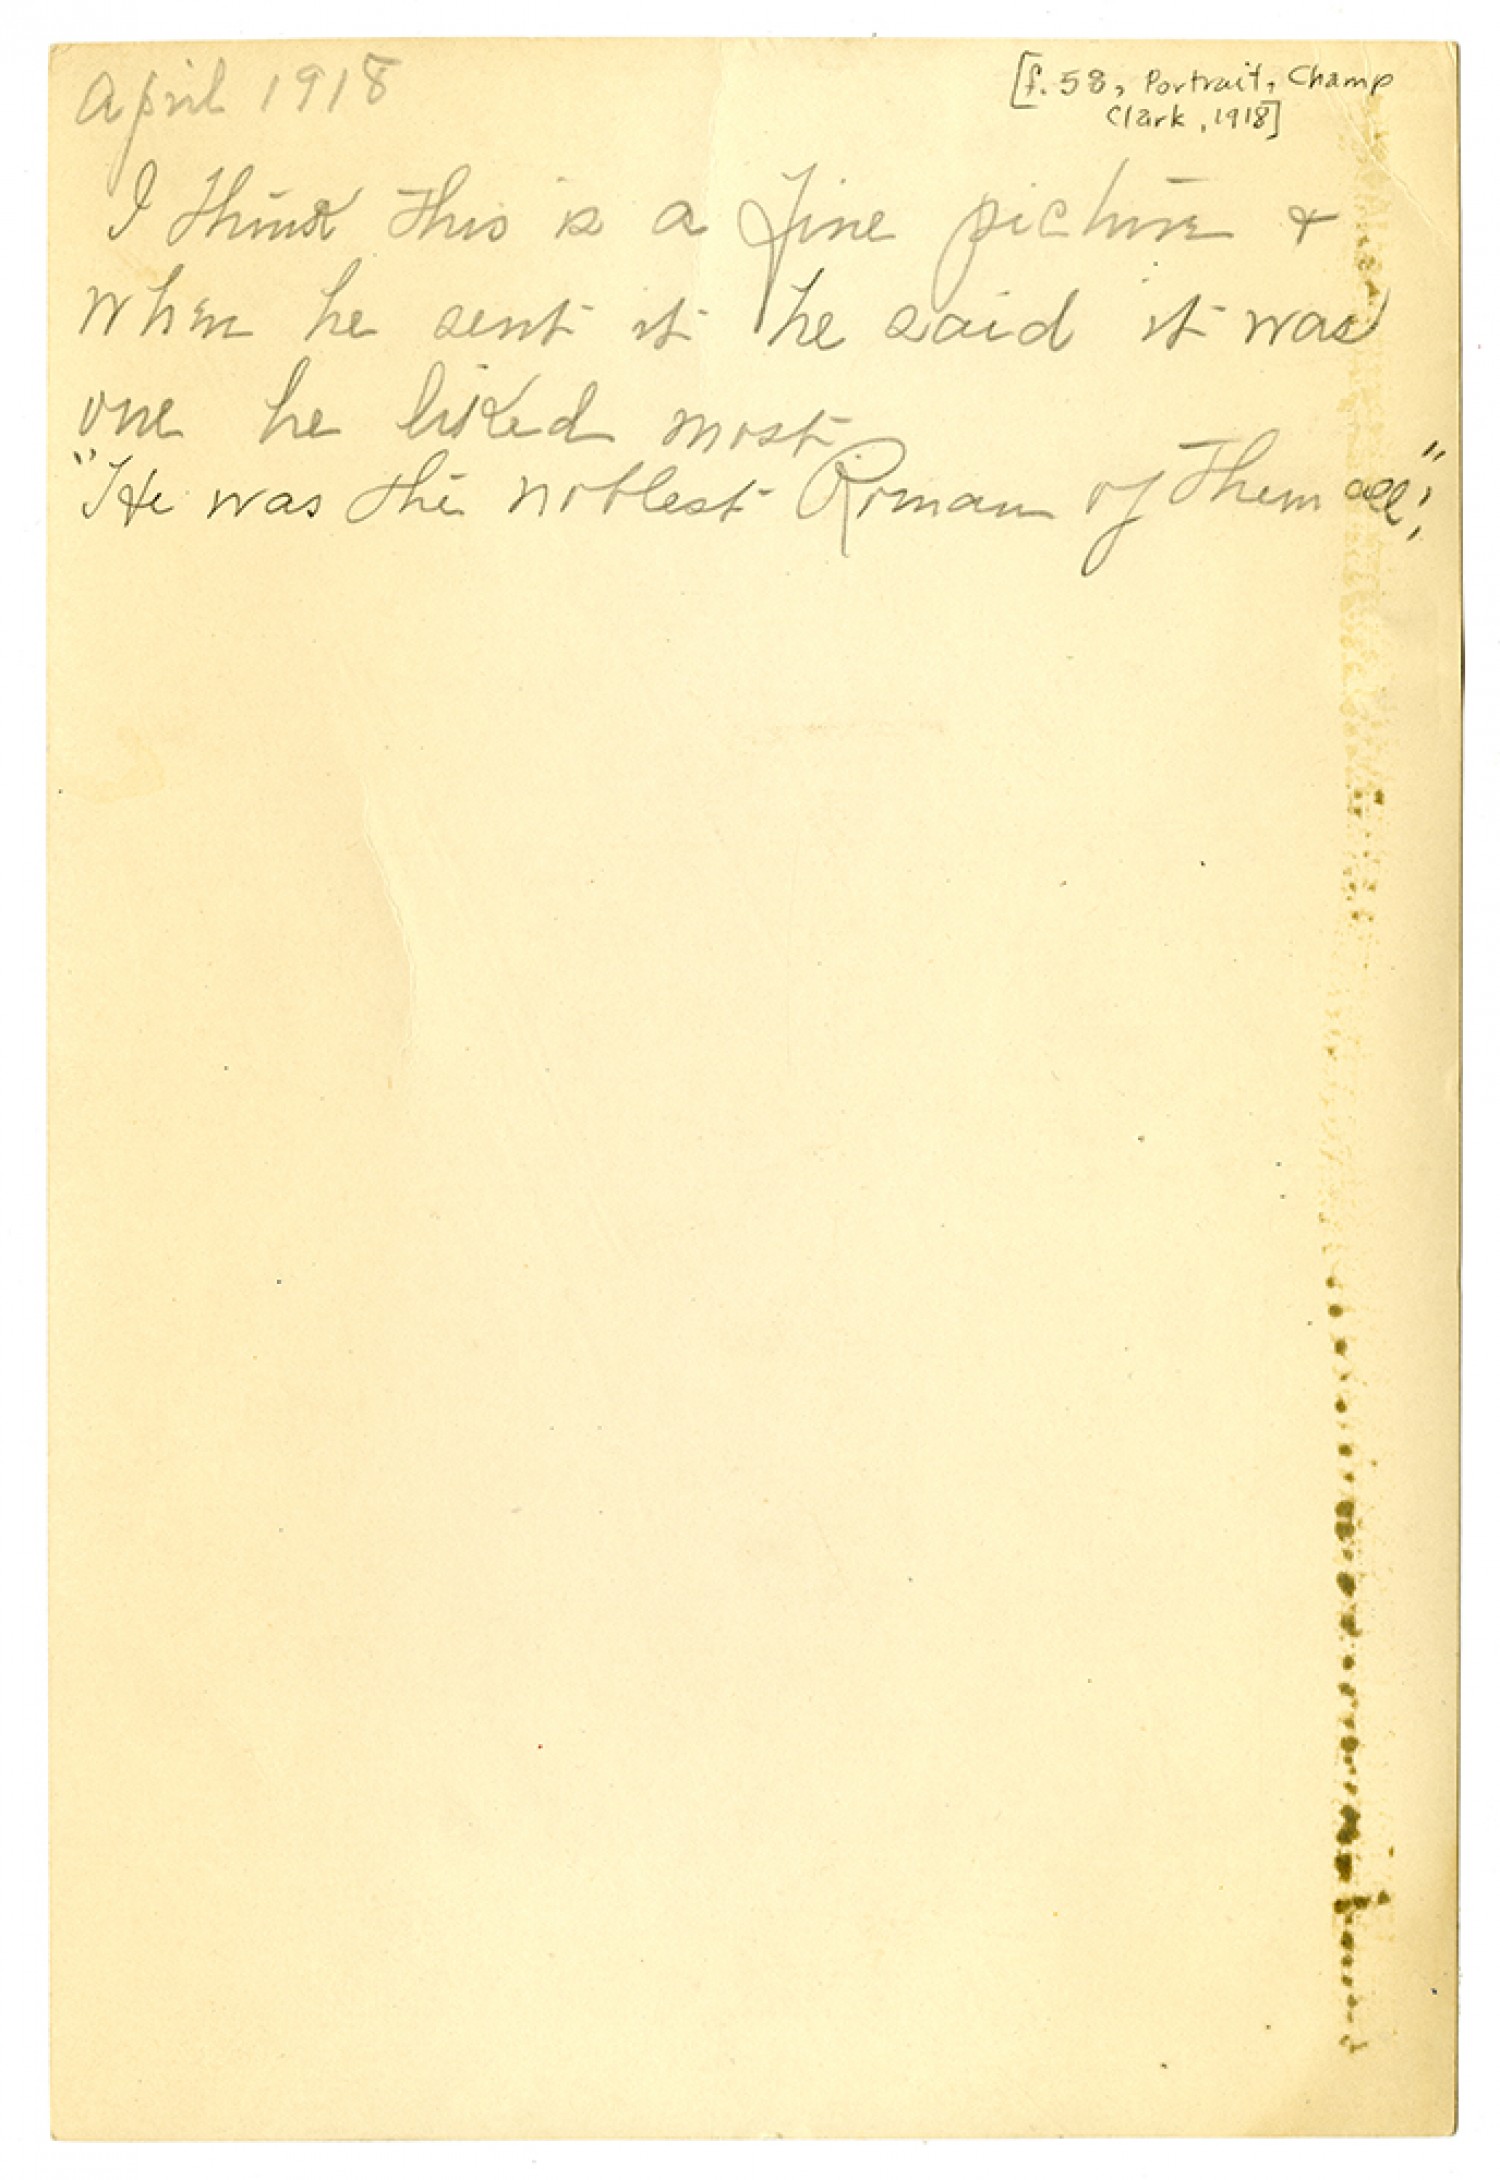 April 1918
[f. 58, Portrait, Champ
Clark, 1918]
I think this is a fine picture &
when he sent it he said it was
one he liked most
"He was the noblest Roman of them all".